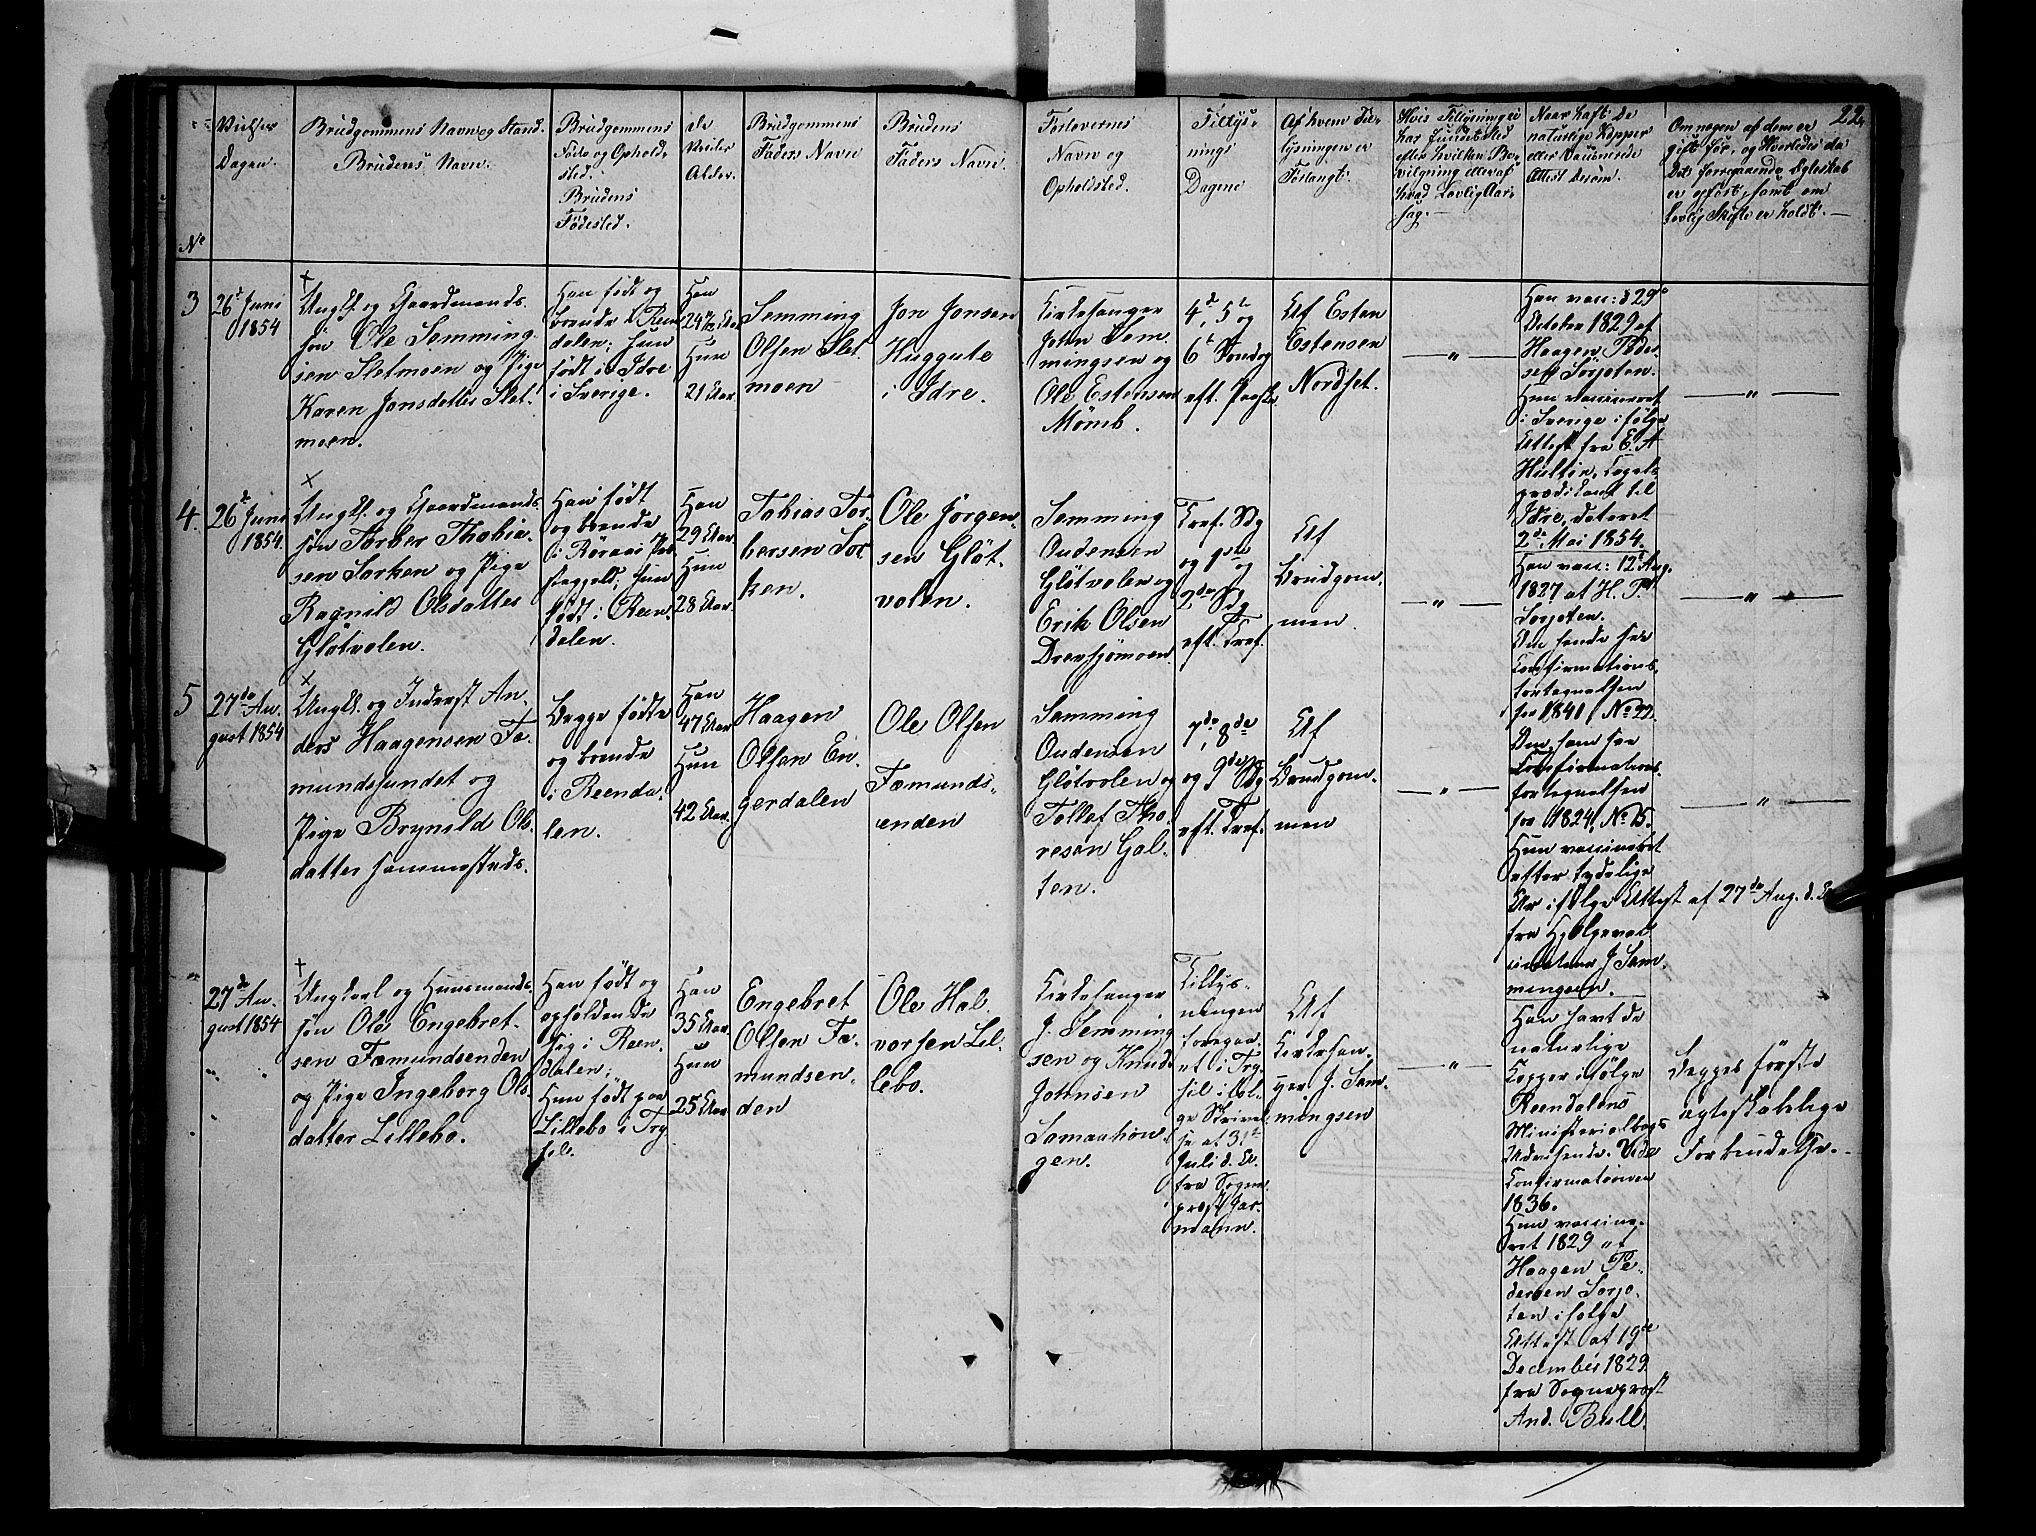 22.
No
Vielses
Dagen.
Brudgommens Navn og Stand.
Brudens Navn.
Brudgommens
Føde og Ophold-
sted.
Brudens
Fødested.
De
Alder.
Brudgommens
Faders Navn
Brudens
Faders Navn.
Forlovernes
Navn og
Opholdsted.
Tillys-
nings
Dagene
Af hvem Til-
lysningen er
Forlangt.
Hvis Tillysning ei
har fundet sted
efter hvilken Be-
vilgning eller af
hvad Lovlig Aar-
sag.
Naar havt De
naturlige Kopper
eller Vaccinerede
Attest derom.
Om nogen af dem er
gift før, og hvorledes da
Det forregaaende Egteskab
er ophørt, samt om
Lovlig Skifte er holdt.
3
26de Juni
1854
Ungk. og Gaardmands-
søn Ole Semming-
sen Sletmoen og Pige
Karen Jonsdatter Slet-
moen.
Han født og
boende i Reen-
dalen; Hun
født i Idre
i Sverige.
Han
Hun
21 Aar.
Semming
Olsen Slet-
moen
Jon Jonsen
Huggute
i Idre.
Kirkesanger
John Sem-
mingsen og
Ole Estensen
Mömb.
4de, 5te og
6te Søndag
eft. Paaske
Af Esten
Estensen
Nordset.
"
Han vacc: d 29de
October 1829 af
Haagen Peder-
sen Sorjoten.
Hun vaccineret
i Sverige i følge
Attest fra E. A
Hultin, Capel-
prædikant til
Idre, dateret
2den Mai 1854.
"
4.
26de Juni
1854.
Ungk. og Gaardmands-
søn Torber Thobia-
sen Sorken og Pige
Ragnild Olsdatter
Glötvolen.
Han født
og boende
i Røraas Præ-
stegjeld; Hun
født i Reen-
dalen.
Han
29 Aar.
Hun
28 Aar.
Tobias Tor-
bersen Sor-
ken.
Ole Jörgen-
sen Glöt-
volen.
Semming
Oudensen
Glötvolen og
Erik Olsen
Drevsjömoen
Tref. Sdg
og 1ste og
2den Sdg
eft. Tref.
Af
Brudgom-
men.
"
Han vacc: 12te Aug.
1827 af H. Pd.
Sorjoten.
Om hende see
Confirmations-
fortegnelsen
for 1841, No 22.
"
5
27de Au-
gust 1854
Ungk. og Inderst An-
ders Haagensen Fæ-
mundssundet og
Pige Brynild Ols-
datter sammesteds.
Begge fødte
og boende
i Reenda-
len.
Han
47 Aar
Hun
42 Aar.
Haagen
Olsen En-
gerdalen
Ole Olsen
Fæmunds-
enden
Semming
Oudensen
Glötvolen og
Tollef Tho-
resen Gal-
ten.
7de, 8de
og 9de Sdg
eft. Tref.
Af
Brudgom-
men
"
Om ham see
Confirmations-
fortegnelsen
for 1824, No 15.
Hun vaccineret
efter tydelige
Ar i følge Attest af 27de Aug. d. A.
fra Hjelpevac-
cinateur J Sem-
mingsen.
"
"
27de Au-
gust 1854
" "
"
Ungkarl og Huusmands-
søn Ole Engebret-
sen Fæmundsenden
og Pige Ingeborg Ols-
datter Lillebo.
Han født og
opholden De
sig i Reen-
dalen;
Hun født paa
Lillebo i Try-
sil.
Han
35 Aar.
Hun
25 Aar
Engebret
Olsen Fæ-
mundsen-
den
Ole Hal-
vorsen Lil-
lebo.
Kirkesanger
J. Semming-
sen og Knud
Johnsen
gen.
Tillys-
ningen
foregaa-
et i Try-
sil i føl-
ge Skrivel-
se af 31te
Juli d. A.
fra Sogne-
præst Jar-
mann.
Af
Kirkesan-
ger J. Sem-
mingsen
"
Han havt de
naturlige
Kopper i følge
Reendalens
Ministerialbogs
Udvisende. Vide
Confirmationen
1836.
Hun vaccine-
ret 1829 af
Haagen Pe-
dersen Sorjo-
ten i følge
Attest af 19de
December 1829
fra Sognepræst
And. Bull.
Begges første
egteskabelige
Forbindelse.-